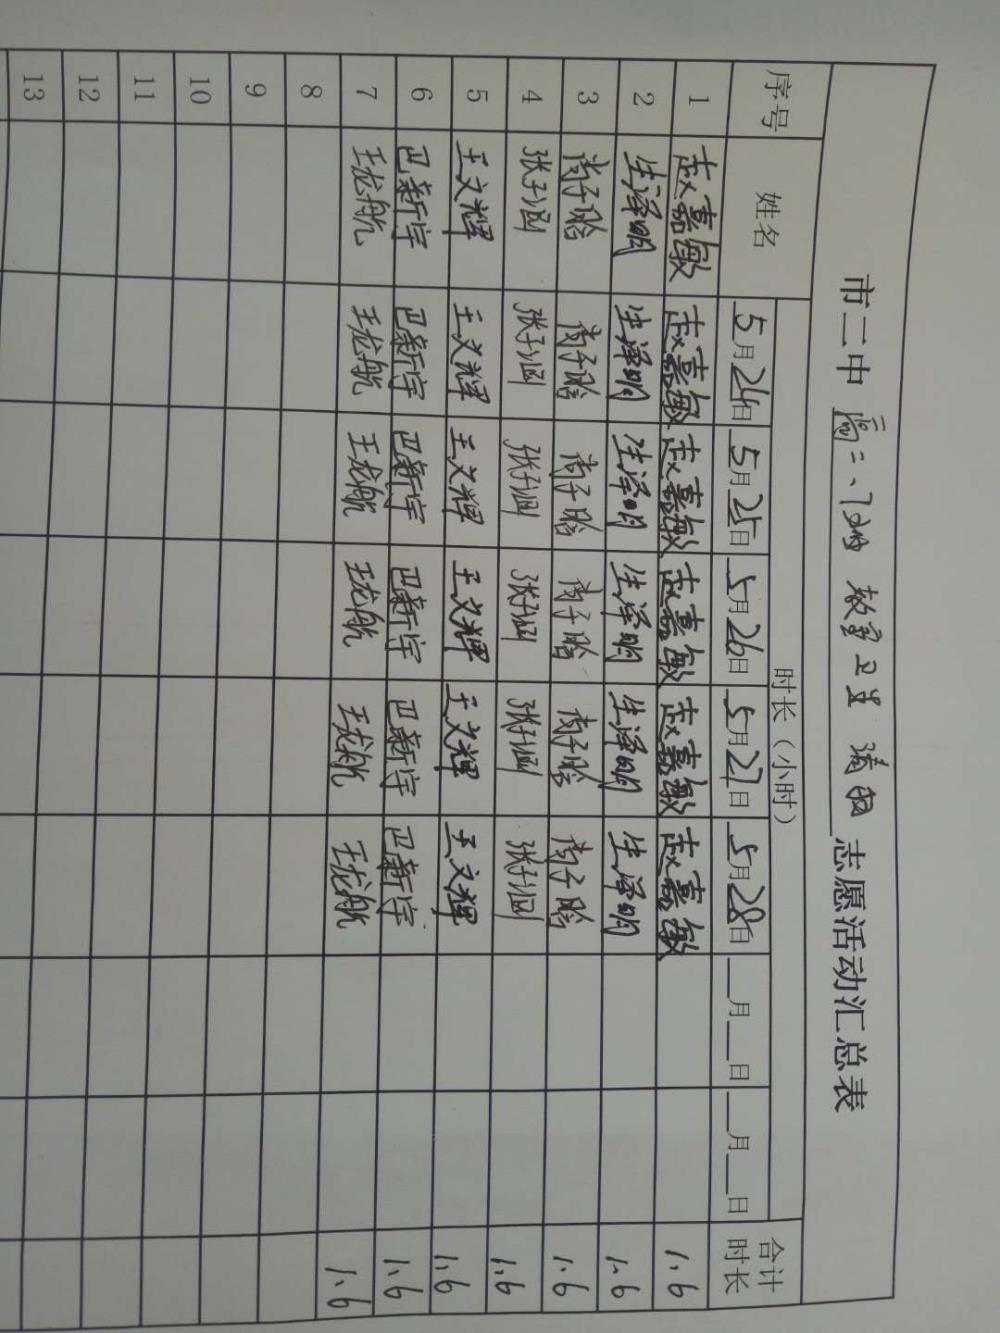 市二中 高二、八班 教室卫生 清扫 志愿活动汇总表
序号 姓名 时长（小时） 合计时长
5月24日 5月25日 5月26日 5月27日 5月28日 __月__日 __月__日
1 赵嘉敏 赵嘉敏 赵嘉敏 赵嘉敏 赵嘉敏 赵嘉敏 1.6
2 生泽明 生泽明 生泽明 生泽明 生泽明 生泽明 1.6
3 子晗 子晗 子晗 子晗 子晗 子晗 1.6
4 张子涵 张子涵 张子涵 张子涵 张子涵 张子涵 1.6
5 王文辉 王文辉 王文辉 王文辉 王文辉 王文辉 1.6
6 巴新宇 巴新宇 巴新宇 巴新宇 巴新宇 巴新宇 1.6
7 王龙航 王龙航 王龙航 王龙航 王龙航 王龙航 1.6
8
9
10
11
12
13